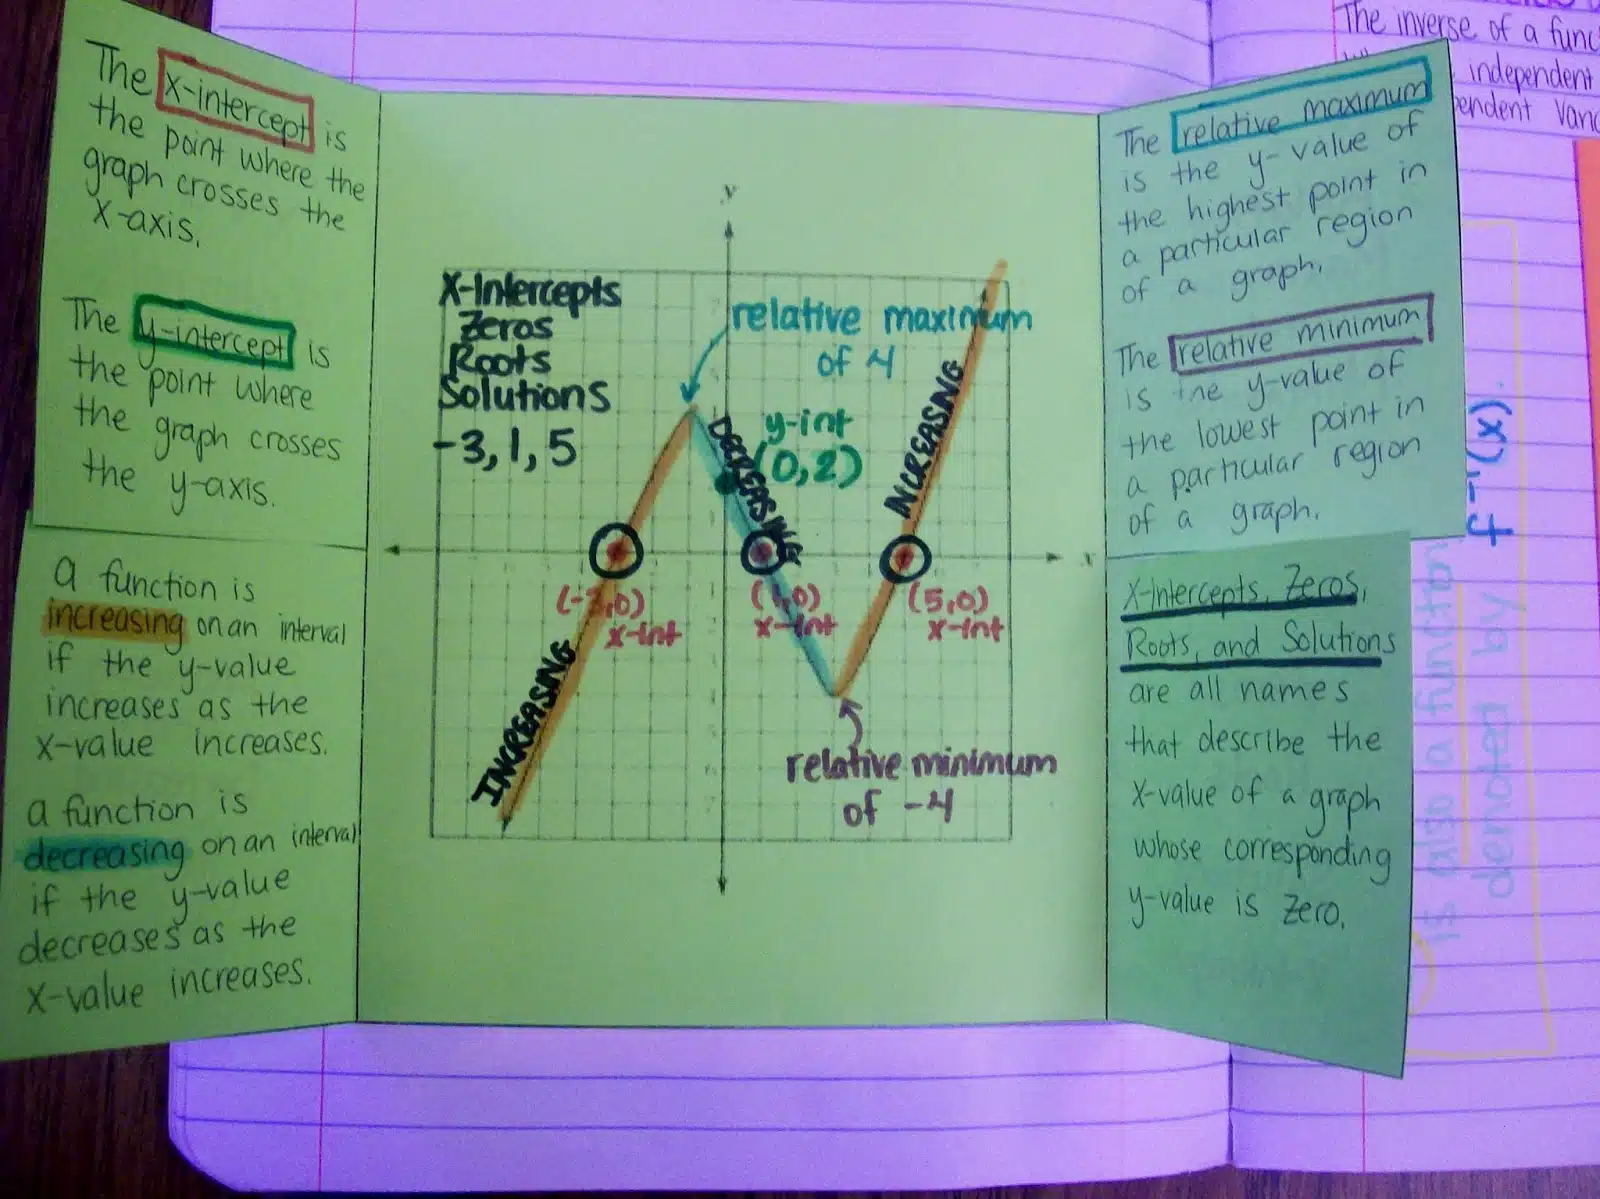 The x-intercept is
the point where the
graph crosses the
x-axis.
The y-intercept is
the point where
the graph crosses
the y-axis.
a function is
increasing on an interval
if the y-value
increases as the
x-value increases.
a function is
decreasing on an interval
if the y-value
decreases as the
x-value increases.
y
X-Intercepts
Zeros
Roots
Solutions
-3, 1, 5
relative maximum
of 4
y-int
(0,2)
INCREASING
DECREASING
INCREASING
x
(-3,0)
x-int
(1,0)
x-int
(5,0)
x-int
relative minimum
of -4
The relative maximum
is the y-value of
the highest point in
a particular region
of a graph.
The relative minimum
is the y-value of
the lowest point in
a particular region
of a graph.
X-Intercepts, Zeros,
Roots, and Solutions
are all names
that describe the
x-value of a graph
whose corresponding
y-value is zero.
The inverse of a func
independent
pendent
f⁻¹(x).
is also a function
denoted by